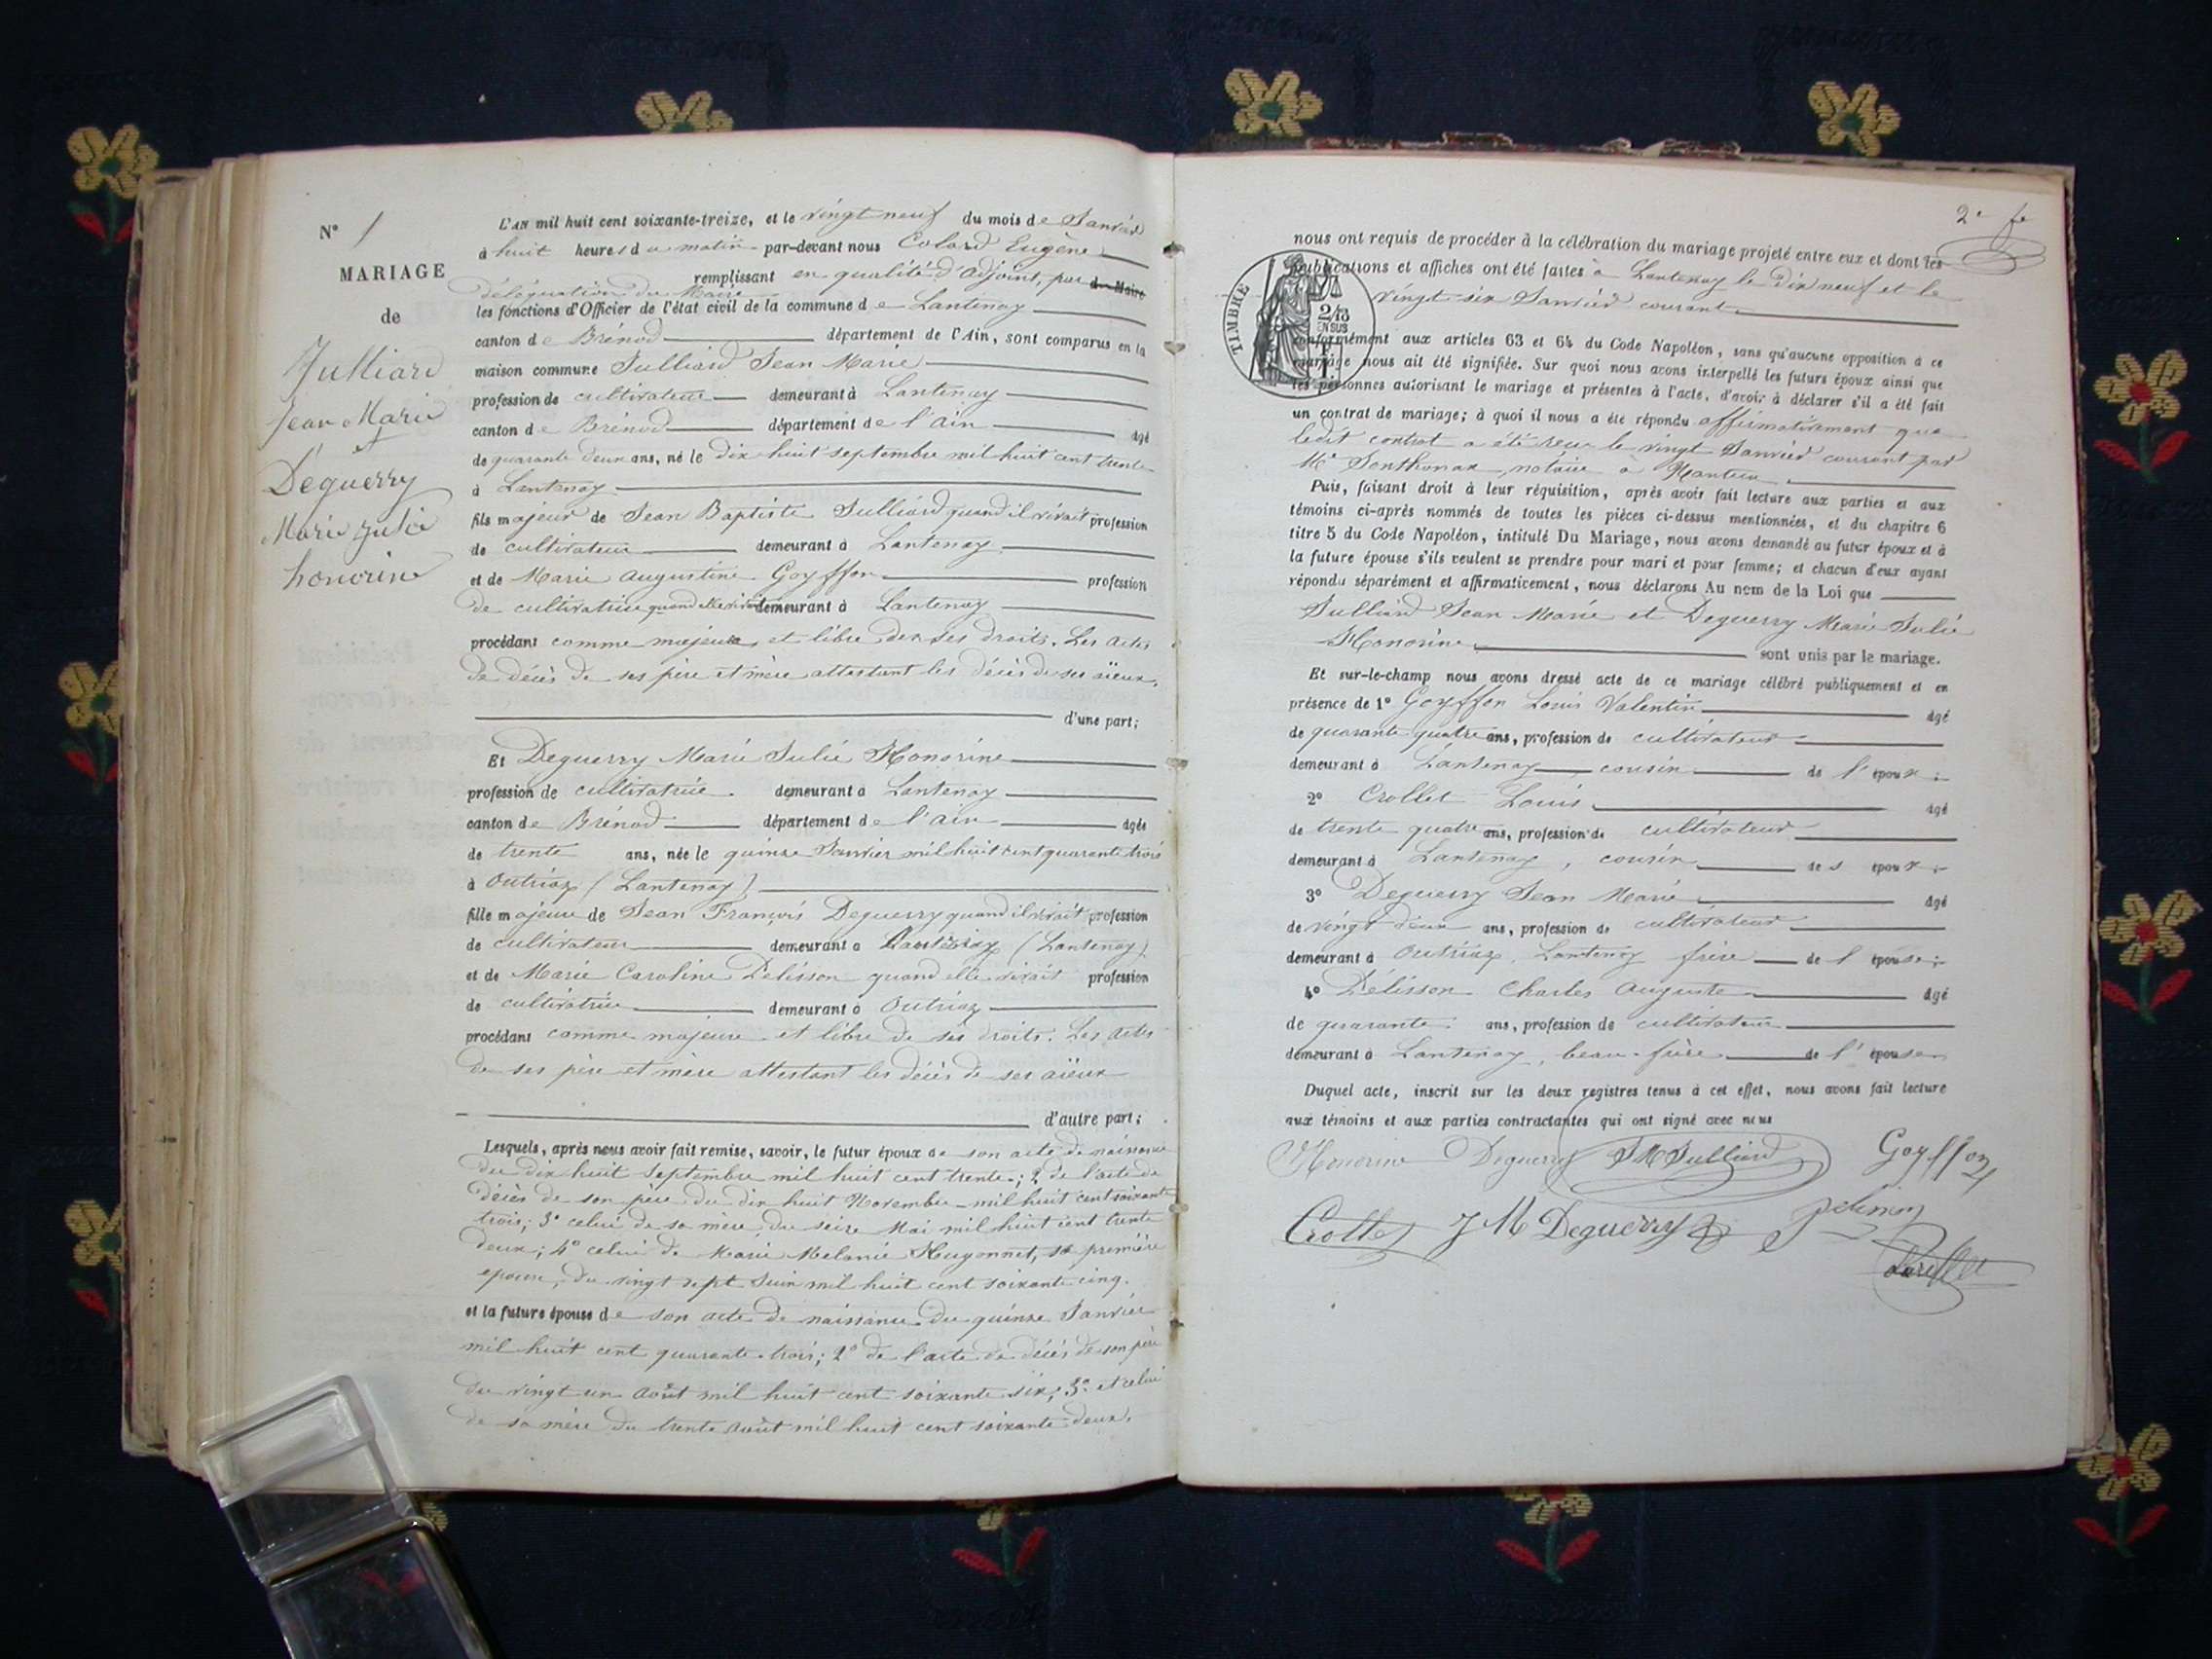 N° 1
MARIAGE
de
Julliard
Jean Marie
et
Deguerry
Marie Julie
honorine
L'AN mil huit cent soixante-treize, et le vingt neuf du mois de Janvier
à huit heures du matin par-devant nous Colard Eugène
remplissant en qualité d'adjoint, par du Maire
délégation du Maire
les fonctions d'Officier de l'état civil de la commune de Lantenay
canton de Brénod département de l'Ain, sont comparus en la
maison commune Julliard Jean Marie
profession de cultivateur demeurant à Lantenay
canton de Brénod département de l'ain âgé
de quarante deux ans, né le dix huit septembre mil huit cent trente
à Lantenay
fils majeur de Jean Baptiste Julliard quand il vivait profession
de cultivateur demeurant à Lantenay
et de Marie Augustine Goyffon profession
de cultivatrice quand elle vivait demeurant à Lantenay
procédant comme majeur et libre de ses droits. Les actes
de décès de ses père et mère attestant les décès de ses aïeux.
d'une part;
Et Deguerry Marie Julie Honorine
profession de cultivatrice demeurant à Lantenay
canton de Brénod département de l'ain âgée
de trente ans, née le quinze Janvier mil huit cent quarante trois
à Outriaz (Lantenay)
fille majeure de Jean François Deguerry quand il vivait profession
de cultivateur demeurant à Outriaz (Lantenay)
et de Marie Caroline Pélisson quand elle vivait profession
de cultivatrice demeurant à Outriaz
procédant comme majeure et libre de ses droits. Les actes
de ses père et mère attestant les décès de ses aïeux
d'autre part;
Lesquels, après nous avoir fait remise, savoir, le futur époux de son acte de naissance
du dix huit septembre mil huit cent trente; 2° de l'acte de
décès de son père du dix huit Novembre mil huit cent soixante
trois; 3° celui de sa mère du seize Mai mil huit cent trente
deux; 4° celui de Marie Melanie Hugonnet, sa première
epouse, du vingt sept Juin mil huit cent soixante cinq.
et la future épouse de son acte de naissance du quinze Janvier
mil huit cent quarante trois; 2° de l'acte de décès de son père
du vingt un août mil huit cent soixante six; 3° et celui
de sa mère du trente août mil huit cent soixante deux.
2e fe
nous ont requis de procéder à la célébration du mariage projeté entre eux et dont les
publications et affiches ont été faites à Lantenay le dix neuf et le
vingt six Janvier courant
TIMBRE
2/10
EN SUS
conformément aux articles 63 et 64 du Code Napoléon, sans qu'aucune opposition à ce
mariage nous ait été signifiée. Sur quoi nous avons interpellé les futurs époux ainsi que
les personnes autorisant le mariage et présentes à l'acte, d'avoir à déclarer s'il a été fait
un contrat de mariage; à quoi il nous a été répondu affirmativement que
ledit contrat a été reçu le vingt Janvier courant par
Me Sonthonax notaire à Nantua
Puis, faisant droit à leur réquisition, après avoir fait lecture aux parties et aux
témoins ci-après nommés de toutes les pièces ci-dessus mentionnées, et du chapitre 6
titre 5 du Code Napoléon, intitulé Du Mariage, nous avons demandé au futur époux et à
la future épouse s'ils veulent se prendre pour mari et pour femme; et chacun d'eux ayant
répondu séparément et affirmativement, nous déclarons Au nom de la Loi que
Julliard Jean Marie et Deguerry Marie Julie
Honorine sont unis par le mariage.
Et sur-le-champ nous avons dressé acte de ce mariage célébré publiquement et en
présence de 1° Goyffon Louis Valentin âgé
de quarante quatre ans, profession de cultivateur
demeurant à Lantenay cousin de l'époux;
2° Crollet Louis âgé
de trente quatre ans, profession de cultivateur
demeurant à Lantenay, cousin des époux;
3° Deguerry Jean Marie âgé
de vingt deux ans, profession de cultivateur
demeurant à Outriaz, Lantenay frère de l'épouse;
4° Pélisson Charles Auguste âgé
de quarante ans, profession de cultivateur
demeurant à Lantenay, beau-frère de l'épouse
Duquel acte, inscrit sur les deux registres tenus à cet effet, nous avons fait lecture
aux témoins et aux parties contractantes qui ont signé avec nous
Honorine Deguerry JM Julliard Goyffon
Crollet J M Deguerry Pelisson